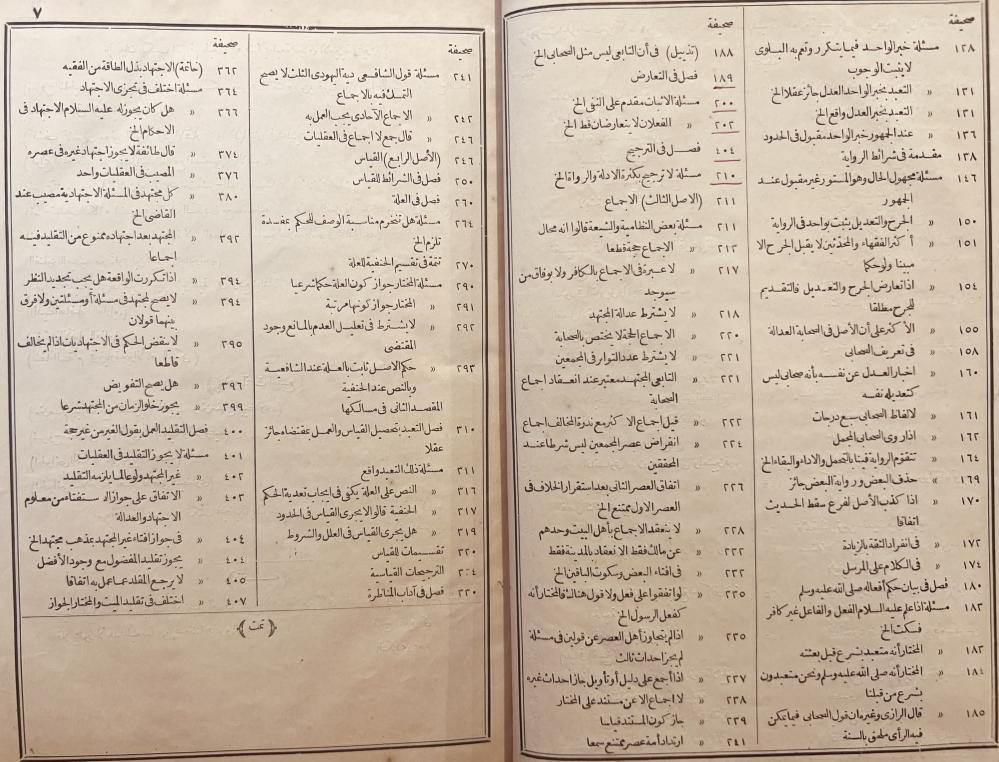 صحيفة
١٢٨ مسئلة خبر الواحد فيما يتكرر وتعم به البلوى
لا يثبت الوجوب
١٣١ « التعبد بخبر الواحد العدل جائز عقلا الخ
١٣١ « التعبد بخبر العدل واقع الخ
١٣٦ « عند الجمهور خبر الواحد مقبول فى الحدود
١٣٨ مقدمة فى شرائط الرواية
١٤٦ مسئلة مجهول الحال وهو المستور غير مقبول عند
الجمهور
١٥٠ « الجرح والتعديل يثبت بواحد فى الرواية
١٥١ « أكثر الفقهاء والمحدثين لا يقبل الجرح الا
مبينا ولو حكما
١٥٤ « اذا تعارض الجرح والتعديل فالتقديم
للجرح مطلقا
١٥٥ « الأكثر على أن الأصل فى الصحابة العدالة
١٥٨ « فى تعريف الصحابى
١٦٠ « اخبار العدل عن نفسه بأنه صحابى ليس
كتعديله نفسه
١٦١ « لالفاظ الصحابى سبع درجات
١٦٢ « اذا روى الصحابى المجمل
١٦٤ « تتقوم الرواية فينا بالتحمل والاداء والبقاء الخ
١٦٩ « حذف البعض ورواية البعض جائز
١٧٠ « اذا كذب الأصل الفرع سقط الحديث
اتفاقا
١٧٢ « فى انفراد الثقة بالزيادة
١٧٤ « فى الكلام على المرسل
١٨٠ فصل فى بيان حكم أفعاله صلى الله عليه وسلم
١٨٣ مسئلة اذا علم عليه السلام الفعل والفاعل غير كافر
فسكت الخ
١٨٣ « المختار أنه متعبد بشرع قبل بعثته
١٨٤ « المختار أنه صلى الله عليه وسلم ونحن متعبدون
بشرع من قبلنا
١٨٥ « قال الرازى وغيره ان قول الصحابى فيما يمكن
فيه الرأى ملحق بالسنة
صحيفة
١٨٨ (تذييل) فى أن التابعى ليس مثل الصحابى الخ
١٨٩ فصل فى التعارض
٢٠٠ مسئلة الاثبات مقدم على النفى الخ
٢٠٢ « الفعلان لا يتعارضان قط الخ
٤٠٤ فصل فى الترجيح
٢١٠ مسئلة لا ترجيح بكثرة الادلة والرواة الخ
٢١١ (الاصل الثالث) الاجماع
٢١١ مسئلة بعض النظامية والشيعة قالوا انه محال
٢١٣ « الاجماع حجة قطعا
٢١٧ « لا عبرة فى الاجماع بالكافر ولا بوفاق من
سيوجد
٢١٨ « لا يشترط عدالة المجتهد
٢٢٠ « الاجماع الحجة لا يختص بالصحابة
٢٢١ « لا يشترط عدد التواتر فى المجمعين
٢٢١ « التابعى المجتهد معتبر عند انعقاد اجماع
الصحابة
٢٢٢ « قيل اجماع الاكثر مع ندرة المخالف اجماع
٢٢٤ « انقراض عصر المجمعين ليس شرطا عند
المحققين
٢٢٦ « اتفاق العصر الثانى بعد استقرار الخلاف فى
العصر الاول ممتنع الخ
٢٢٨ « لا ينعقد الاجماع بأهل البيت وحدهم
٢٣٢ « عن مالك فقط الانعقاد بالمدينة فقط
٢٣٢ « فى افتاء البعض وسكوت الباقين الخ
٢٣٥ « لو اتفقوا على فعل ولا قول هنالك فالمختار أنه
كفعل الرسول الخ
٢٣٥ « اذا لم يتجاوز أهل العصر عن قولين فى مسئلة
لم يجز احداث ثالث
٢٣٧ « اذا أجمع على دليل أو تأويل جاز احداث غيره
٢٣٨ « لا اجماع الا عن مستند على المختار
٢٣٩ « جاز كون المستند قياسا
٢٤١ « ارتداد أمة عصر ممتنع سمعا
٧
صحيفة
٢٤١ مسئلة قول الشافعى دية اليهودى الثلث لا يصح
التمسك فيه بالاجماع
٢٤٢ « الاجماع الآحادى يجب العمل به
٢٤٦ « قال جمع لا اجماع فى العقليات
٢٤٦ (الأصل الرابع) القياس
٢٥٠ فصل فى الشرائط للقياس
٢٦٠ فصل فى العلة
٢٦٤ مسئلة هل تنخرم مناسبة الوصف للحكم بمفسدة
تلزم الخ
٢٧٠ تتمة فى تقسيم الحنفية للعلة
٢٩٠ مسئلة المختار جواز كون العلة حكما شرعيا
٢٩١ « المختار جواز كونها مركبة
٢٩٢ « لا يشترط فى تعليل العدم بالمانع وجود
المقتضى
٢٩٣ « حكم الاصل ثابت بالعلة عند الشافعية
وبالنص عند الحنفية
المقصد الثانى فى مسالكها
٣١٠ فصل التعبد بتحصيل القياس والعمل بمقتضاه جائز
عقلا
٣١١ مسئلة ذلك التعبد واقع
٣١٦ « النص على العلة يكفى فى ايجاب تعدية الحكم
٣١٧ « الحنفية قالوا لا يجرى القياس فى الحدود
٣١٩ « هل يجرى القياس فى العلل والشروط
٣٢٠ تقسيمات للقياس
الترجيحات القياسية
٣٣٠ فصل فى آداب المناظرة
صحيفة
٣٦٢ (خاتمة) الاجتهاد بذل الطاقة من الفقيه
٣٦٤ مسئلة اختلف فى تجزى الاجتهاد
٣٦٦ « هل كان يجوز له عليه السلام الاجتهاد فى
الاحكام الخ
٣٧٤ « قال طائفة لا يجوز اجتهاد غيره فى عصره
٣٧٦ « المصيب فى العقليات واحد
٣٨٠ « كل مجتهد فى المسئلة الاجتهادية مصيب عند
القاضى الخ
٣٩٢ « المجتهد بعد اجتهاده ممنوع من التقليد فيه
اجماعا
٣٩٤ « اذا تكررت الواقعة هل يجب تجديد النظر
٣٩٤ « لا يصح لمجتهد فى مسئلة أو مسئلتين ولا فرق
بينهما قولان
٣٩٥ « لا ينقض الحكم فى الاجتهاديات اذا لم يخالف
قاطعا
٣٩٦ « هل يصح التفويض
٣٩٩ « يجوز خلو الزمان من المجتهد شرعا
٤٠٠ فصل التقليد العمل بقول الغير من غير حجة
٤٠١ مسئلة لا يجوز التقليد فى العقليات
٤٠٢ « غير المجتهد ولو عالما يلزمه التقليد
٤٠٣ « الاتفاق على جواز الاستفتاء من معلوم
الاجتهاد والعدالة
٤٠٤ « فى جواز افتاء غير المجتهد بمذهب مجتهد الخ
٤٠٤ « يجوز تقليد المفضول مع وجود الأفضل
٤٠٥ « لا يرجع المقلد عما عمل به اتفاقا
٤٠٧ « اختلف فى تقليد الميت والمختار الجواز
﴿تمت﴾